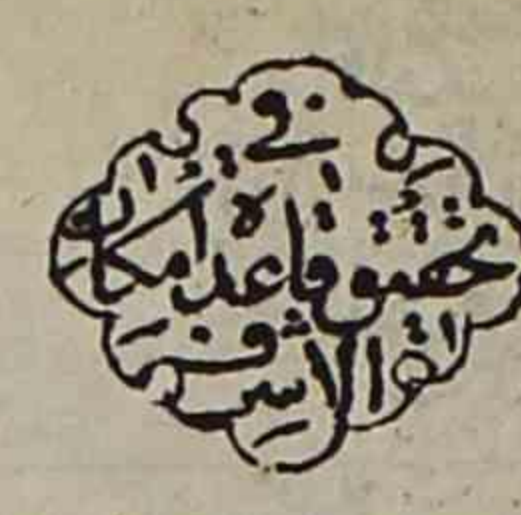 في
تحقيق قاعدة امكان
الاشرف